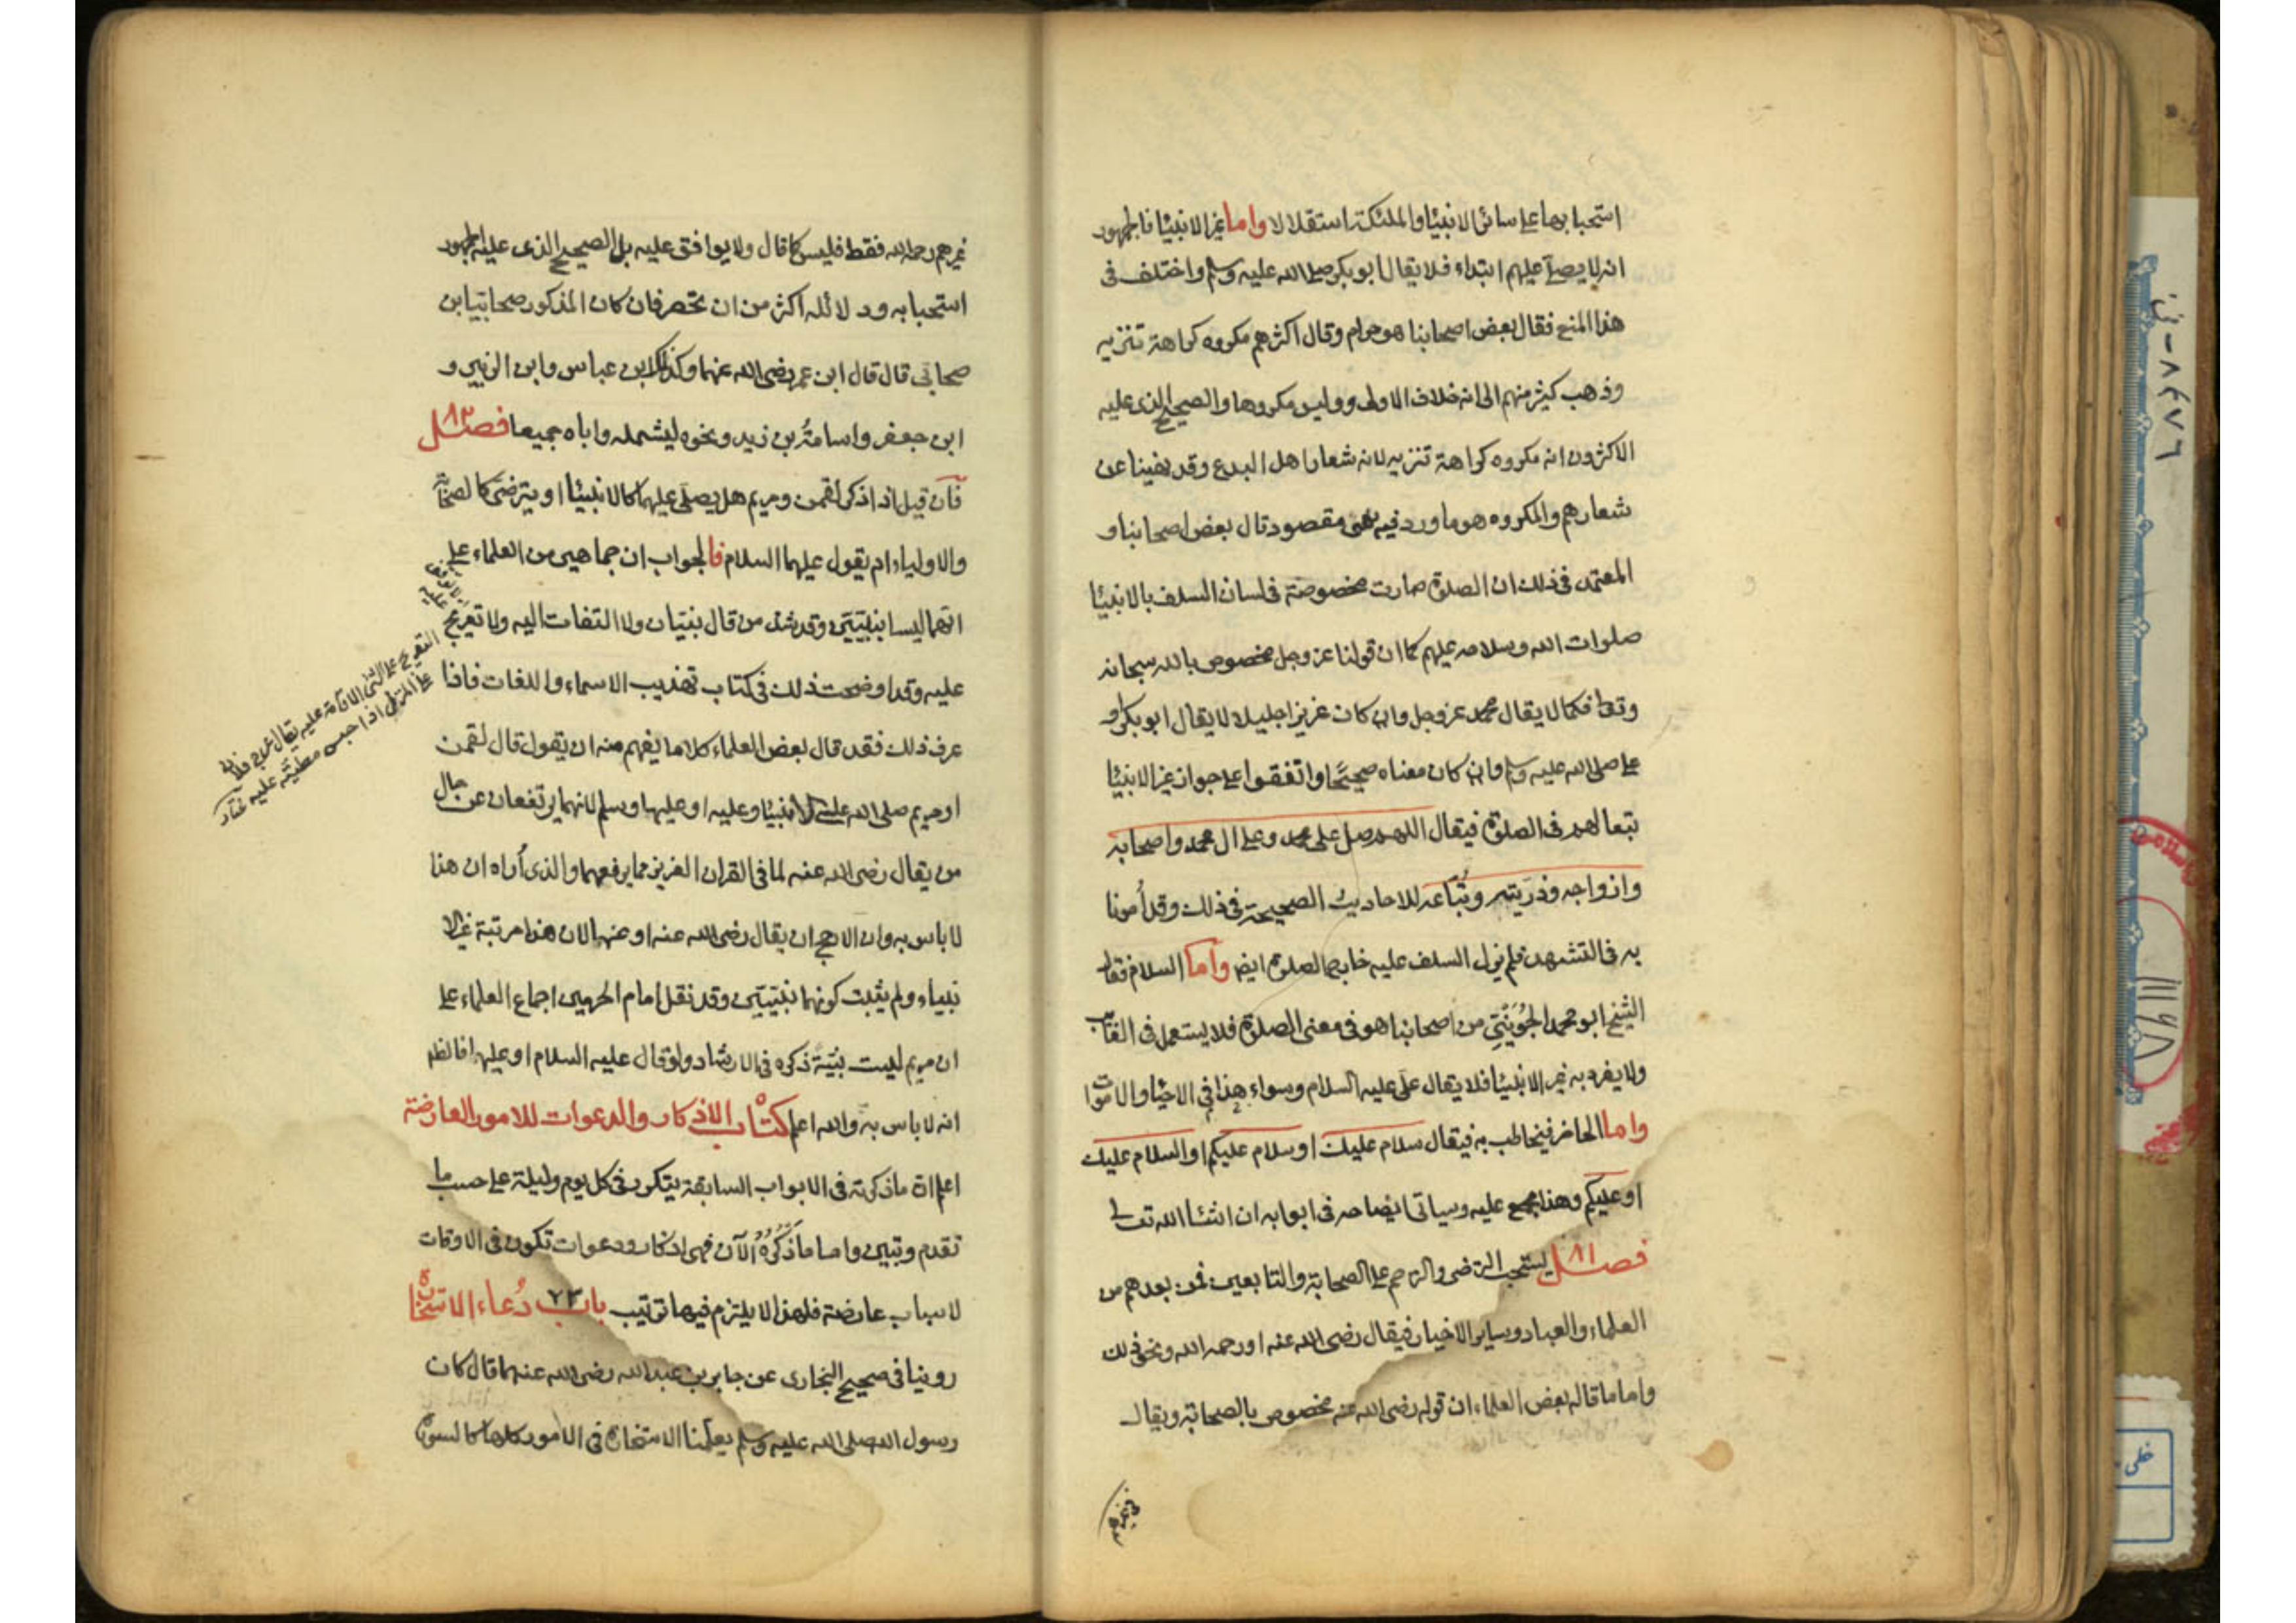 استحبابها على سائر الانبيا والملئكة استقلالا واما غير الانبيا فالجمهور
انه لا يصلى عليهم ابتداء فلا يقال ابو بكر صلى الله عليه وسلم واختلف فى
هذا المنع فقال بعض اصحابنا هو حرام وقال اكثرهم مكروه كراهة تنزيه
وذهب كثير منهم الى انه خلاف الاولى وليس مكروها والصحيح الذى عليه
الاكثرون انه مكروه كراهة تنزيه لانه شعار اهل البدع وقد نهينا عن
شعارهم والمكروه هو ما ورد فيه نهى مقصود قال بعض اصحابنا و
المعتمد فى ذلك ان الصلوة صارت مخصوصة فى لسان السلف بالانبيا
صلوات الله وسلامه عليهم كما ان قولنا عز وجل مخصوص بالله سبحانه
وتعا فكما لا يقال محمد عز وجل وان كان عزيزا جليلا لا يقال ابو بكر او
على صلى الله عليه وسلم وان كان معناه صحيحًا واتفقوا على جواز غير الانبيا
تبعا لهم فى الصلوة فيقال اللهم صل على محمد وعلى ال محمد واصحابه
وازواجه وذريته وتبّاعه للاحاديث الصحيحة فى ذلك وقد أمرنا
به فى التشهد فلم يزل السلف عليه خارج الصلوة ايضا واما السلام فقال
الشيخ ابو محمد الجُوَيْنِى من اصحابنا هو فى معنى الصلوة فلا يستعمل فى الغائب
ولا يفرد به غير الانبيا فلا يقال على عليه السلام وسواء هذا فى الاحيا والاموات
واما الحاضر فيخاطب به فيقال سلام عليك او سلام عليكم او السلام عليك
او عليكم وهذا مجمع عليه وسياتى ايضاحه فى ابوابه ان انشا الله تعالى
فصل ٨١ يستحب الترضى والترحم على الصحابة والتابعين فمن بعدهم من
العلماء والعباد وساير الاخيار فيقال رضى الله عنه او رحمه الله ونحو ذلك
واما ما قاله بعض العلماء ان قوله رضى الله عنه مخصوص بالصحابة ويقال
غيرهم
غيرهم رحمه الله فقط فليس كا قال ولا يوافق عليه بل الصحيح الذى عليه الجمهور
استحبابه ودلائله اكثر من ان تحصر فان كان المذكور صحابيا ابن
صحابى قال قال ابن عمر رضى الله عنهما وكذلك ابن عباس وابن الزبير و
ابن جعفر واسامةُ بن زيد ونحوه ليشمله واباه جميعا فصل ٨٢
فان قيل اذا ذكر لقمن ومريم هل يصلى عليهما كالانبيا او يترضى كالصحابة
والاولياء ام يقول عليهما السلام فالجواب ان جماهير من العلماء على
انهما ليسا بنبيين وقد شذ من قال نبيان ولا التفات اليه ولا تعريج
عليه وقد اوضحت ذلك فى كتاب تهذيب الاسماء واللغات فاذا
عرف ذلك فقد قال بعض العلماء كلاما يفهم منه ان يقول قال لقمن
او مريم صلى الله على الانبيا وعليه او عليها وسلم لانهما يرتفعان عن حال
من يقال رضى الله عنه لما فى القران العزيز مما يرفعهما والذى أراه ان هذا
لا باس به وان الارجح ان يقال رضى الله عنه او عنها لان هذا مرتبة غير الا
نبياء ولم يثبت كونهما نبيين وقد نقل امام الحرمين اجماع العلماء على
ان مريم ليست نبيّة ذكره فى الارشاد ولو قال عليه السلام او عليها فالظاهر
انه لا باس به والله اعلم كتاب الاذكار والدعوات للامور العارضة
اعلم ان ما ذكرته فى الابواب السابقة يتكرر فى كل يوم وليلة على حسب ما
تقدم وتبين واما ما اذكُرُهُ الآن فهى اذكار ودعوات تكون فى الاوقات
لاسباب عارضة فلهذا لا يلتزم فيها ترتيب باب ٢٣ دُعاء الاستخارة
روينا فى صحيح البخارى عن جابر بن عبد الله رضى الله عنهما قال كان
رسول الله صلى الله عليه وسلم يعلّمنا الاستخارة فى الامور كلها كالسورة
التعريج على الشى الاقامة عليه يقال عرج فلان
على المنزل اذا حبس مطيته عليه